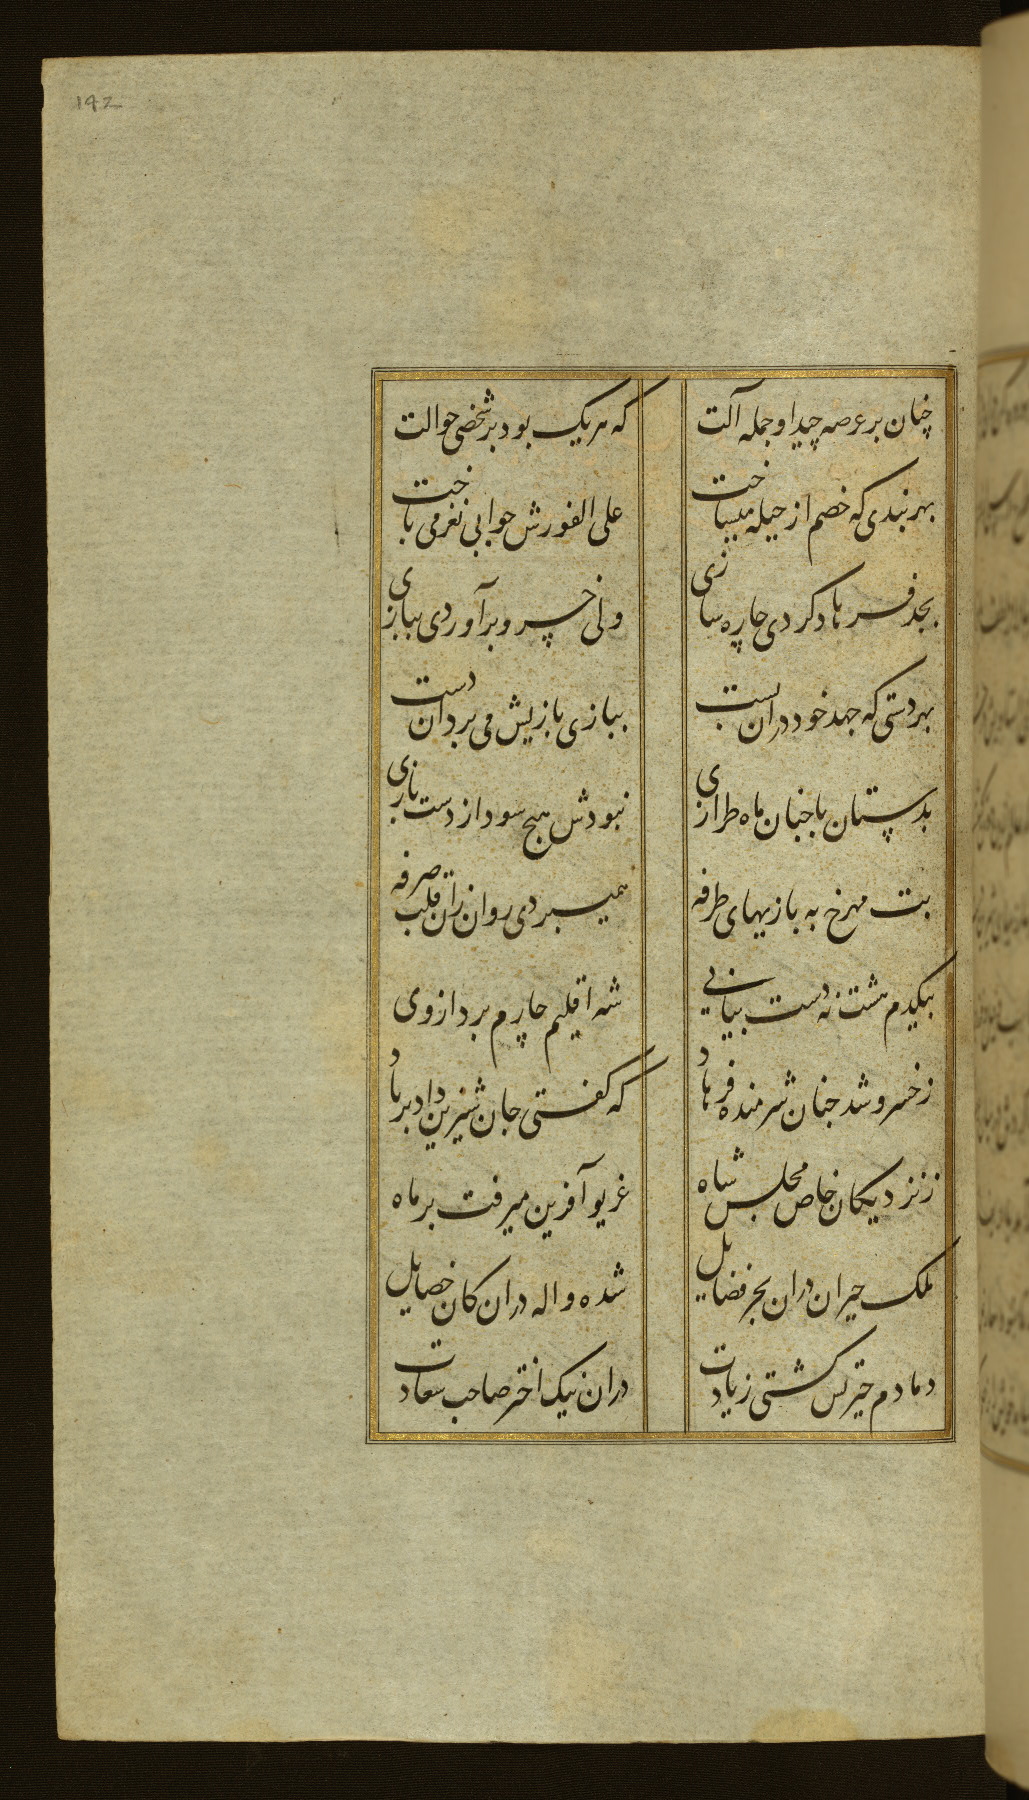 192
چنان بر عرصه چید او جمله آلت
که هر یک بود بر شخصی حوالت
بهر بندی که خصم از حیله میساخت
علی الفورش جوابی نغز می باخت
بجد فرهاد کردی چاره سازی
ولی خسرو برآوردی ببازی
بهر دستی که جهد خود دران بست
ببازی بازیش می برد ان دست
بدستان با جنان ماه طرازی
نبودش هیچ سود از دست بازی
بت مهرخ به بازیهای طرفه
همیبردی روان زان قلب صرفه
بیکدم هشت نه دست بیاپی
شه اقلیم چارم برد از وی
ز خسرو شد جنان شرمنده فرهاد
که گفتی جان شیرین داد برباد
ز نزدیکان خاص مجلس شاه
غریو آفرین میرفت بر ماه
ملک حیران دران بحر فضایل
شده واله دران کان خصایل
دمادم حیرتس گشتی زیادت
دران نیک اختر صاحب سعادت